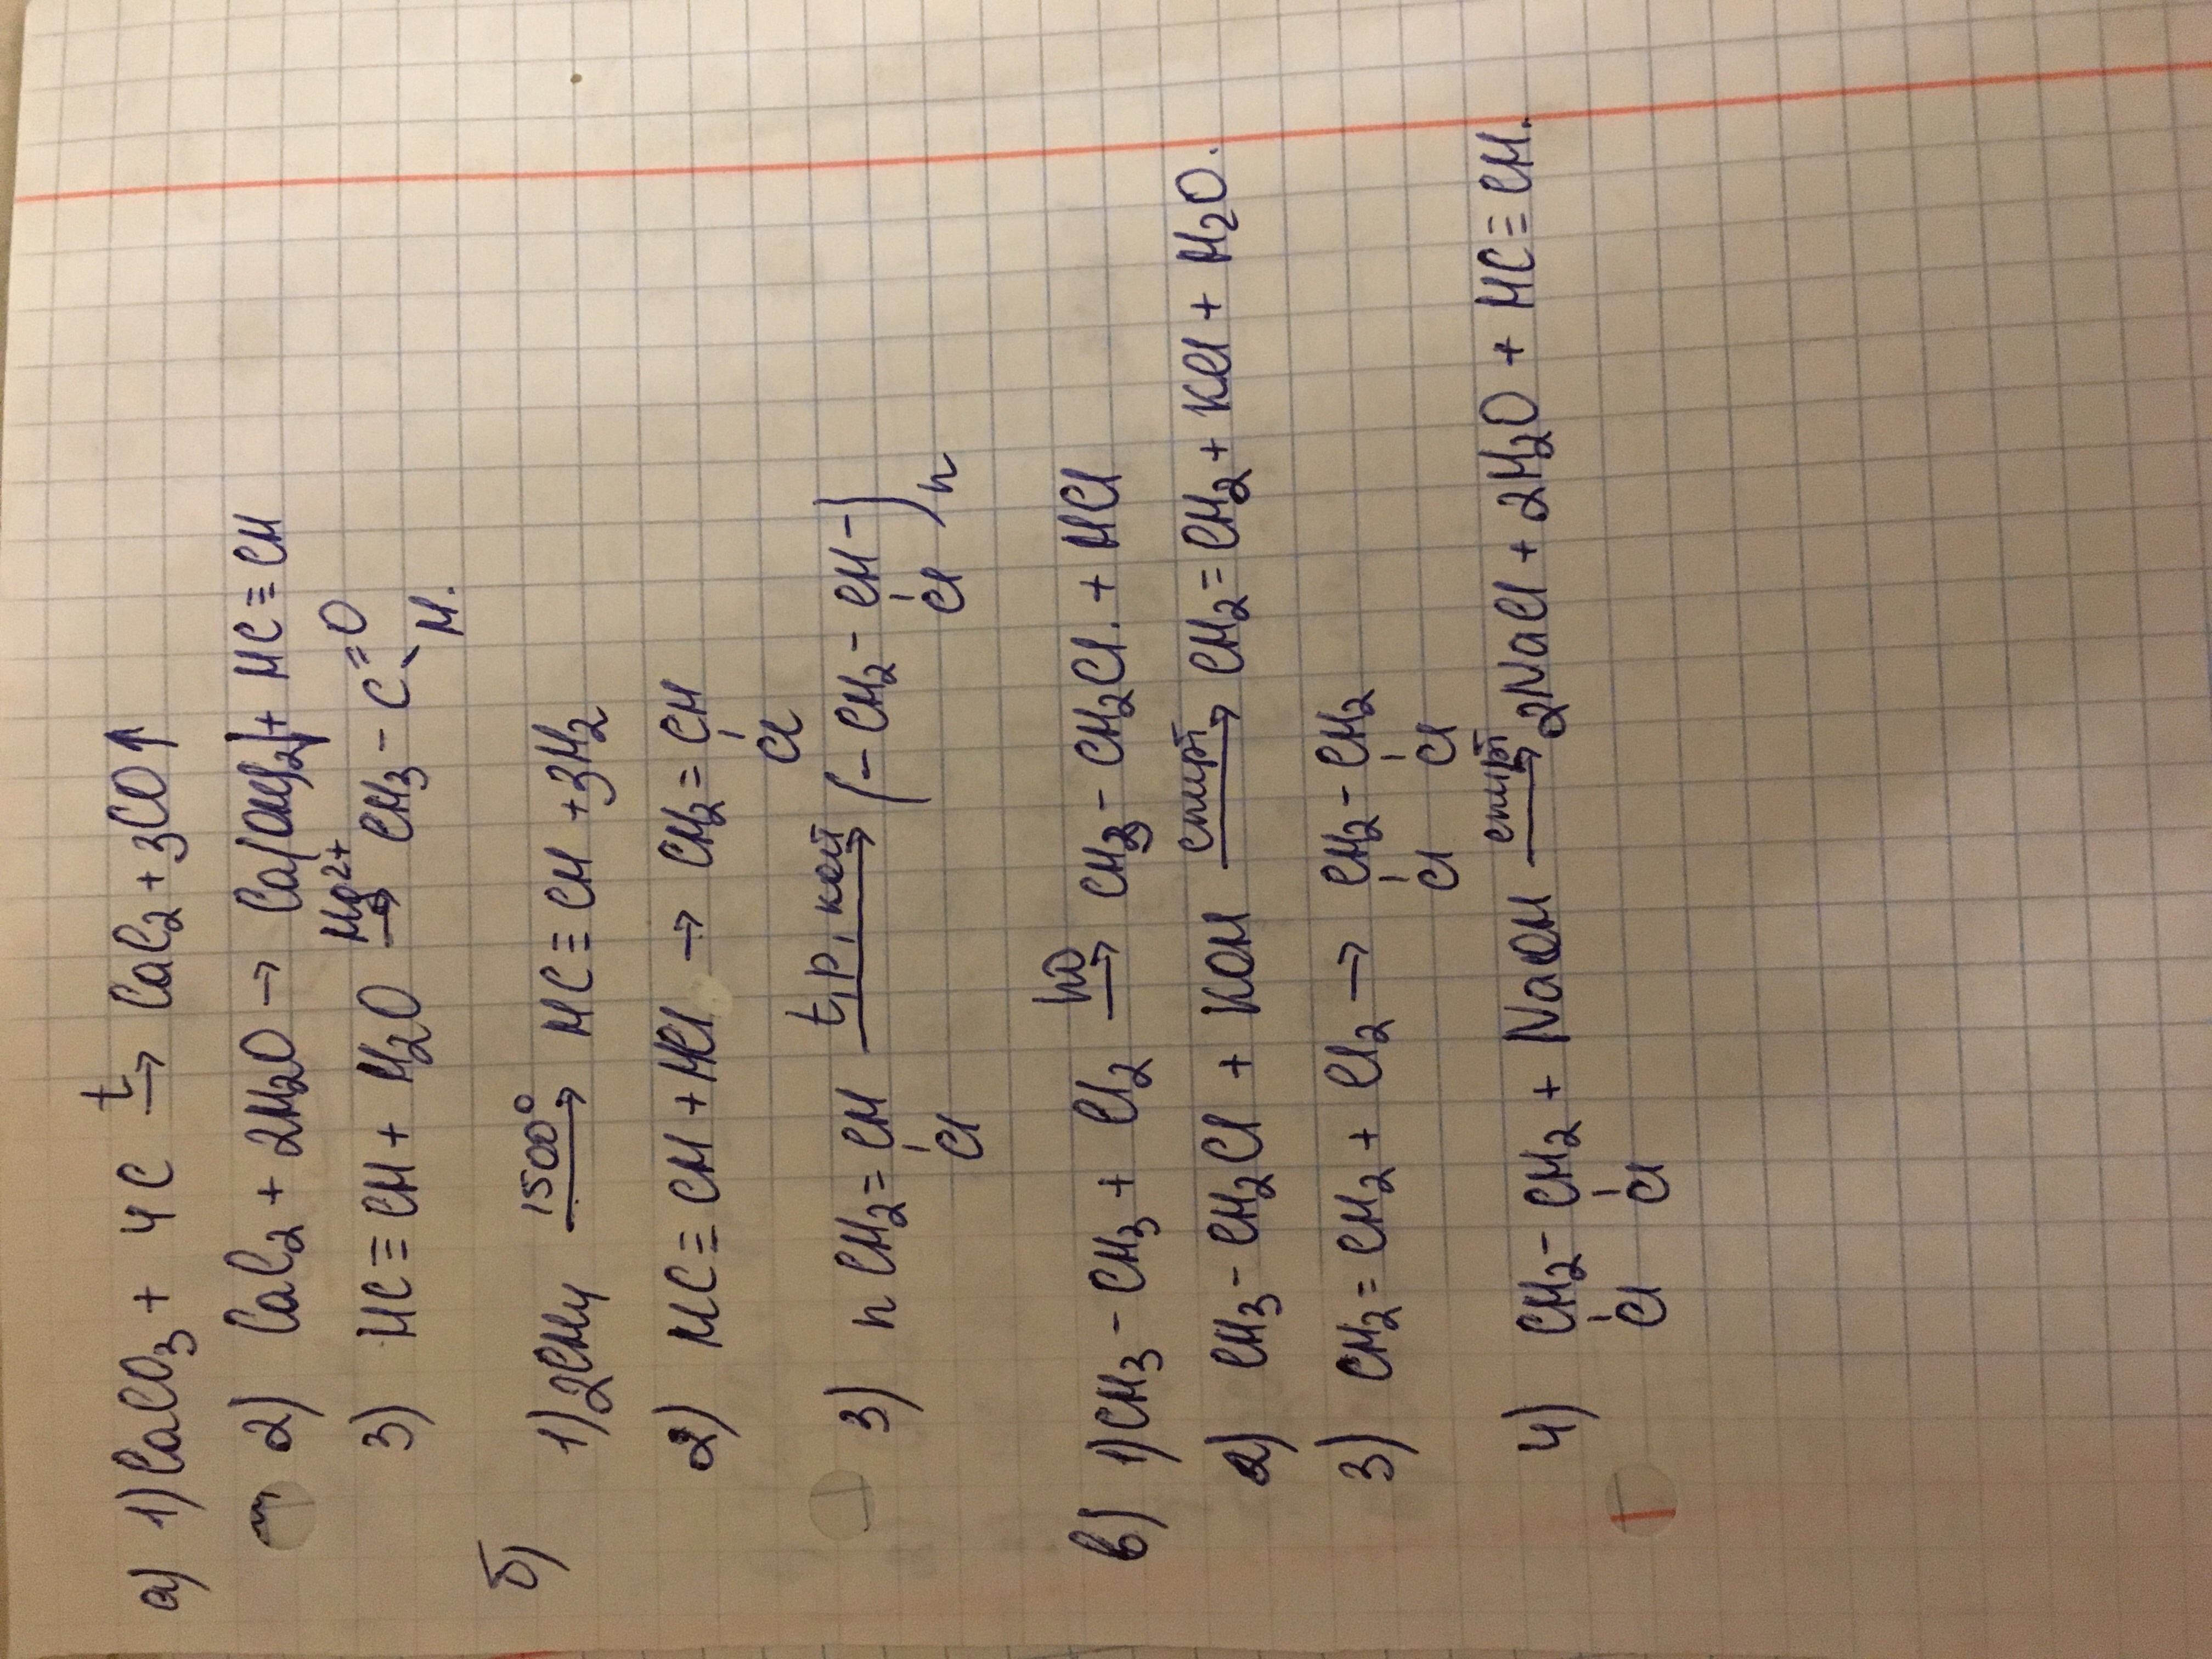 а) 1) CaCO₃ + 4C →(t) CaC₂ + 3CO↑
2) CaC₂ + 2H₂O → Ca(OH)₂ + HC≡CH
3) HC≡CH + H₂O →(Hg²⁺) CH₃-C=O
H.
б)
1) 2CH₄ →(1500°) HC≡CH + 3H₂
2) HC≡CH + HCl → CH₂=CH
Cl
3) n CH₂=CH →(t, p, кат) (-CH₂-CH-)n
Cl Cl
в) 1) CH₃-CH₃ + Cl₂ →(hν) CH₃-CH₂Cl. + HCl
2) CH₃-CH₂Cl + KOH →(спирт) CH₂=CH₂ + KCl + H₂O.
3) CH₂=CH₂ + Cl₂ → CH₂-CH₂
Cl Cl
4) CH₂-CH₂ + NaOH →(спирт) 2NaCl + 2H₂O + HC≡CH.
Cl Cl